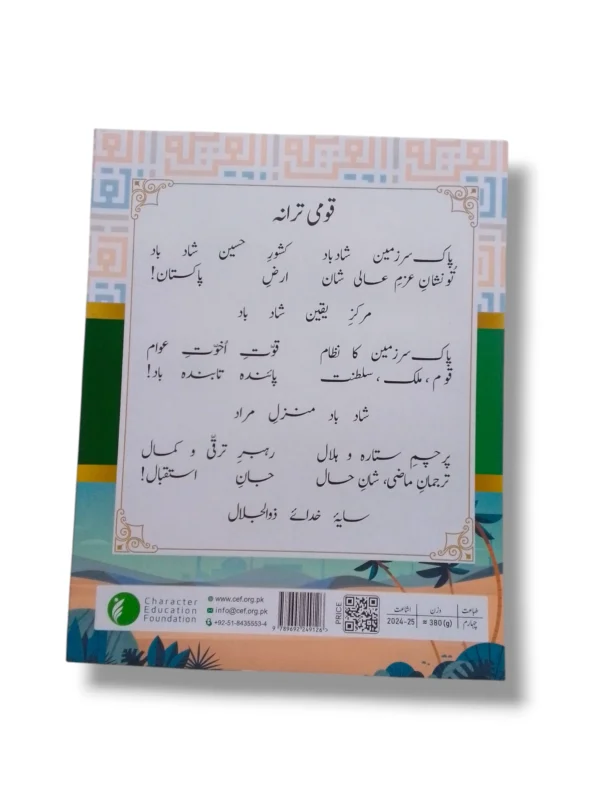 قومی ترانہ
پاک سرزمین شادباد کشورِ حسین شاد باد
تُو نشانِ عزمِ عالی شان ارضِ پاکستان!
مرکزِ یقین شاد باد
پاک سرزمین کا نظام قوّتِ اُخوّتِ عوام
قوم، ملک، سلطنت پائندہ تابندہ باد!
شاد باد منزلِ مراد
پرچمِ ستارہ و ہلال رہبرِ ترقّی و کمال
ترجمانِ ماضی، شانِ حال جانِ استقبال!
سایۂ خدائے ذوالجلال
Character
Education
Foundation
www.cef.org.pk
info@cef.org.pk
+92-51-8435553-4
PRICE
طباعت وزن اشاعت
چہارم = 380 (g) 2024-25